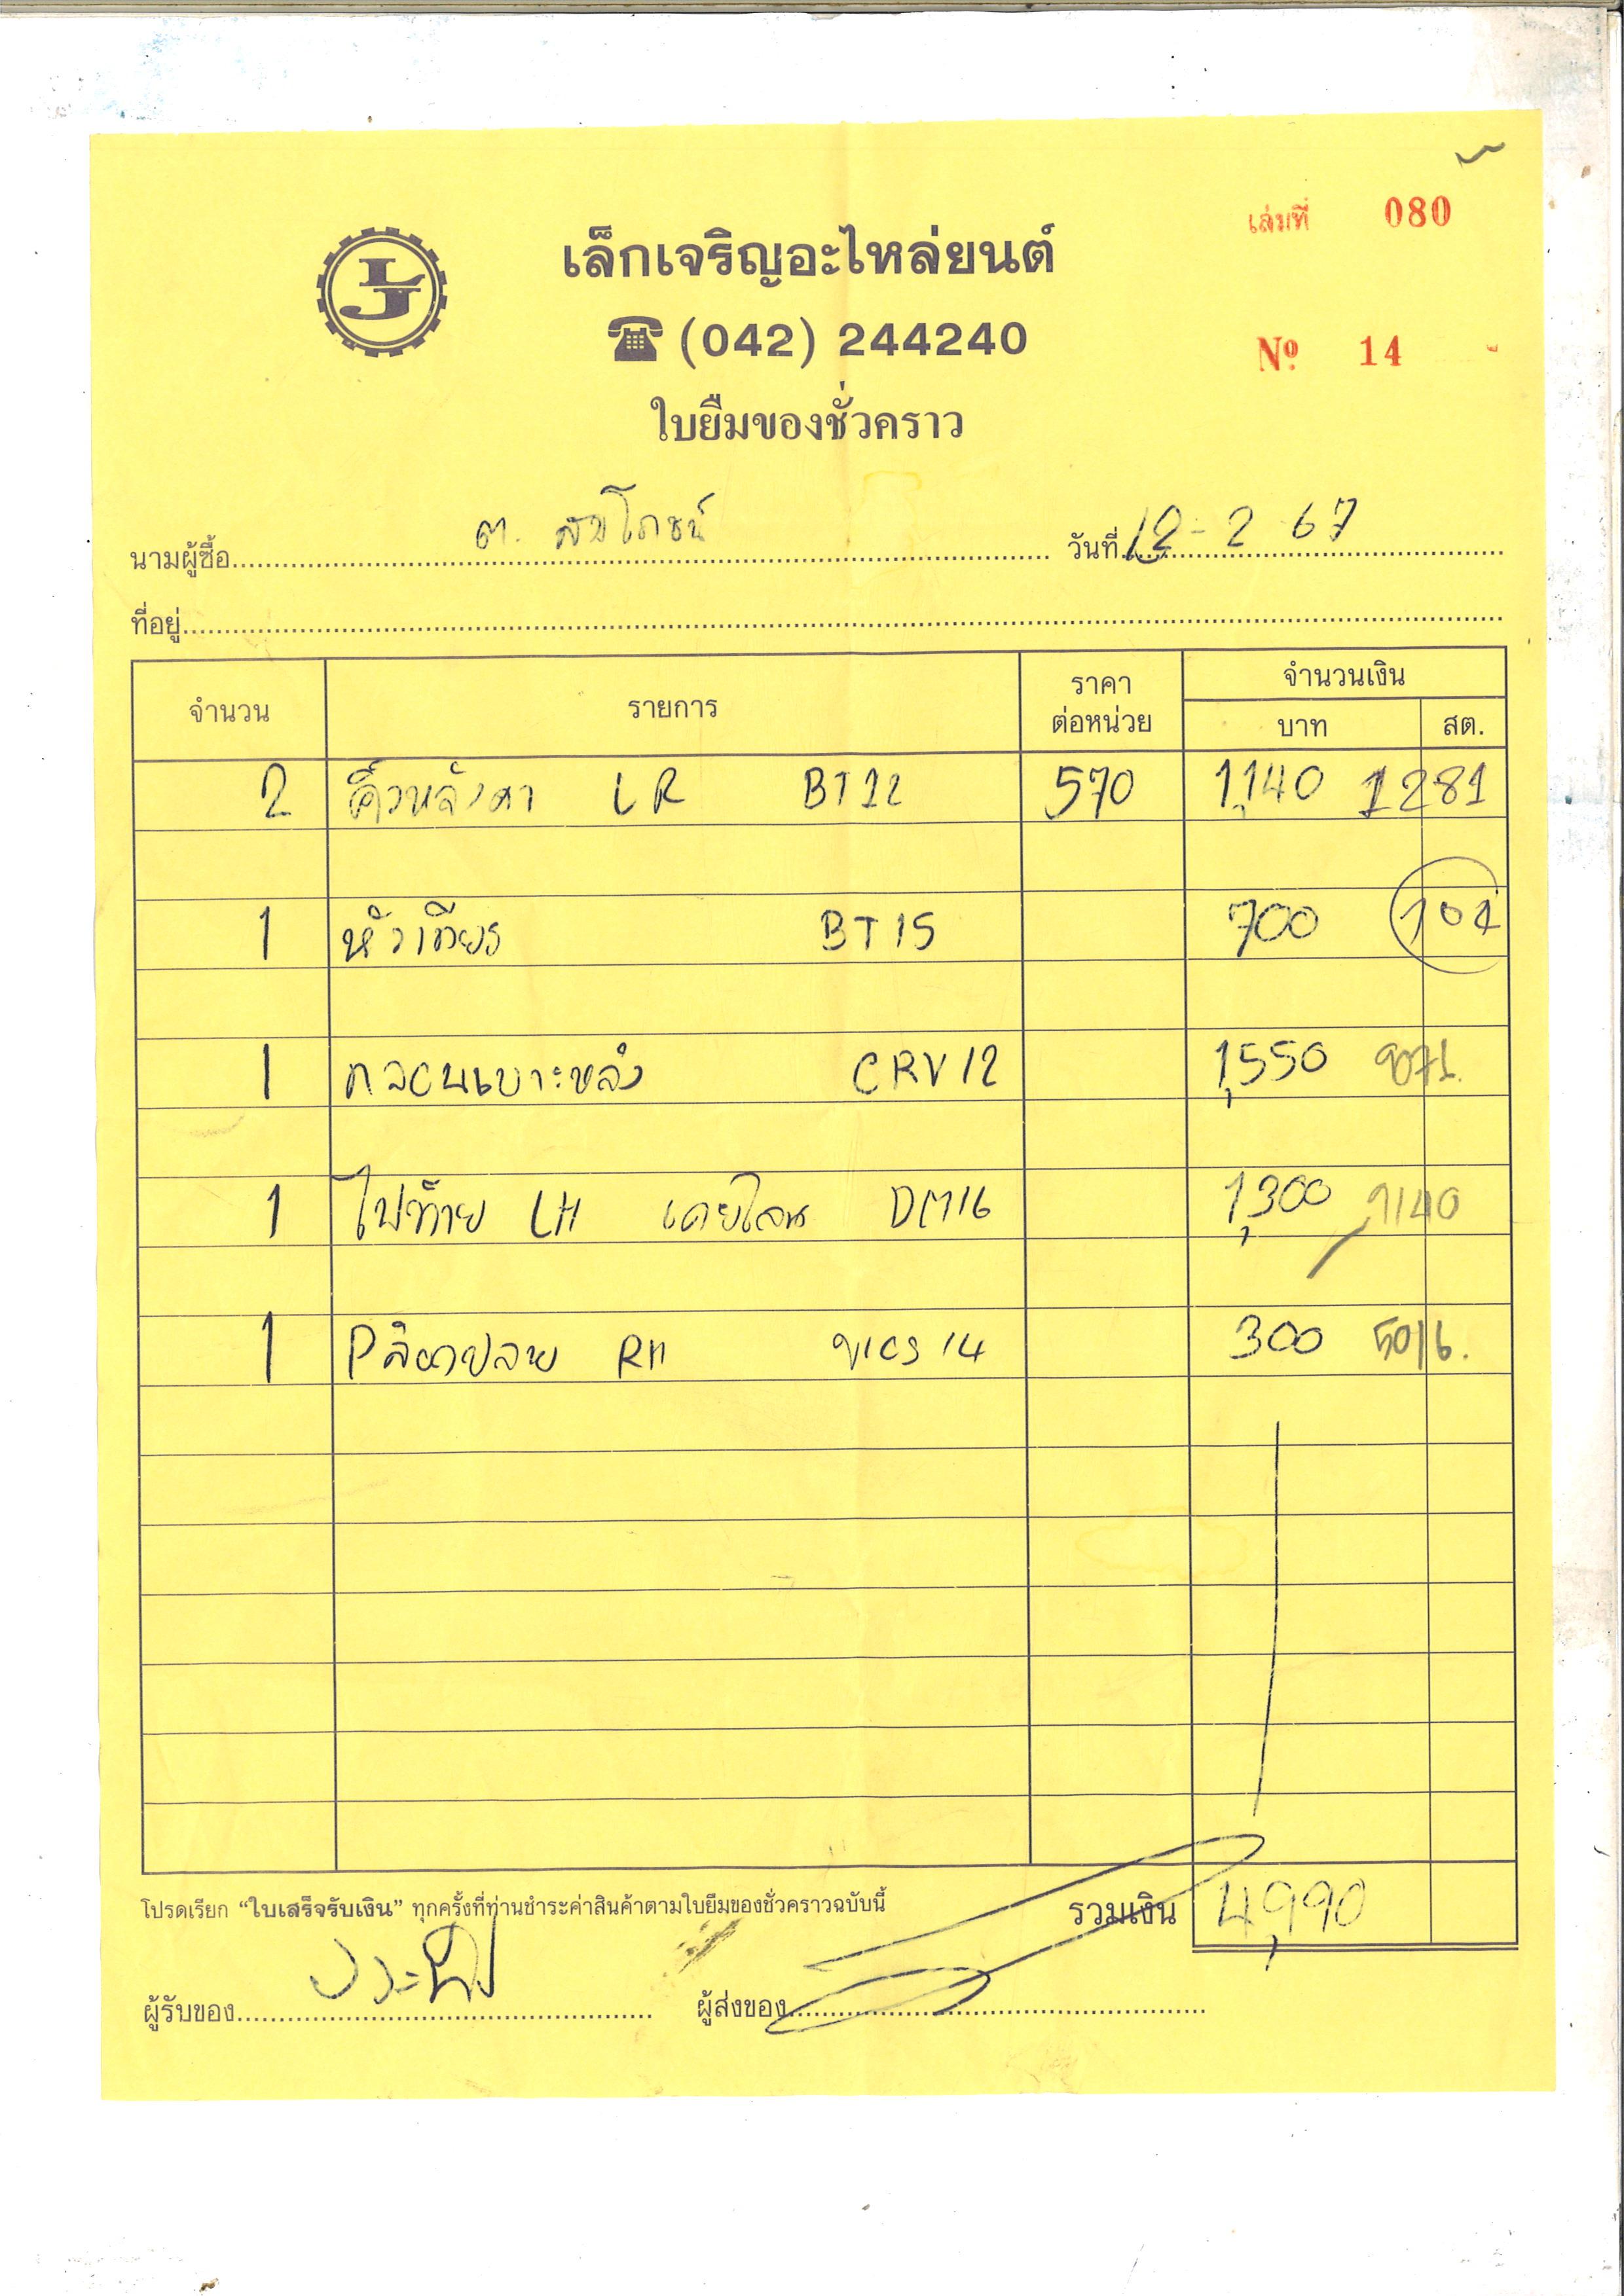 เล่มที่ 080
LJ
เล็กเจริญอะไหล่ยนต์
☎ (042) 244240
Nº 14
ใบยืมของชั่วคราว
นามผู้ซื้อ ต. สมโภชน์ วันที่ 12-2 67
ที่อยู่
จำนวน รายการ ราคาต่อหน่วย จำนวนเงิน
บาท สต.
2 คิ้วหลังคา LR BT12 570 1,140 1281
1 หัวเทียน BT15 700 101
1 กลอนเบาะหลัง CRV12 1,550 9071.
1 ไฟท้าย LH DM16 1,300 9140
1 RH VIOS 14 300 5016.
โปรดเรียก “ใบเสร็จรับเงิน” ทุกครั้งที่ท่านชำระค่าสินค้าตามใบยืมของชั่วคราวฉบับนี้ รวมเงิน 4,990
ผู้รับของ ผู้ส่งของ